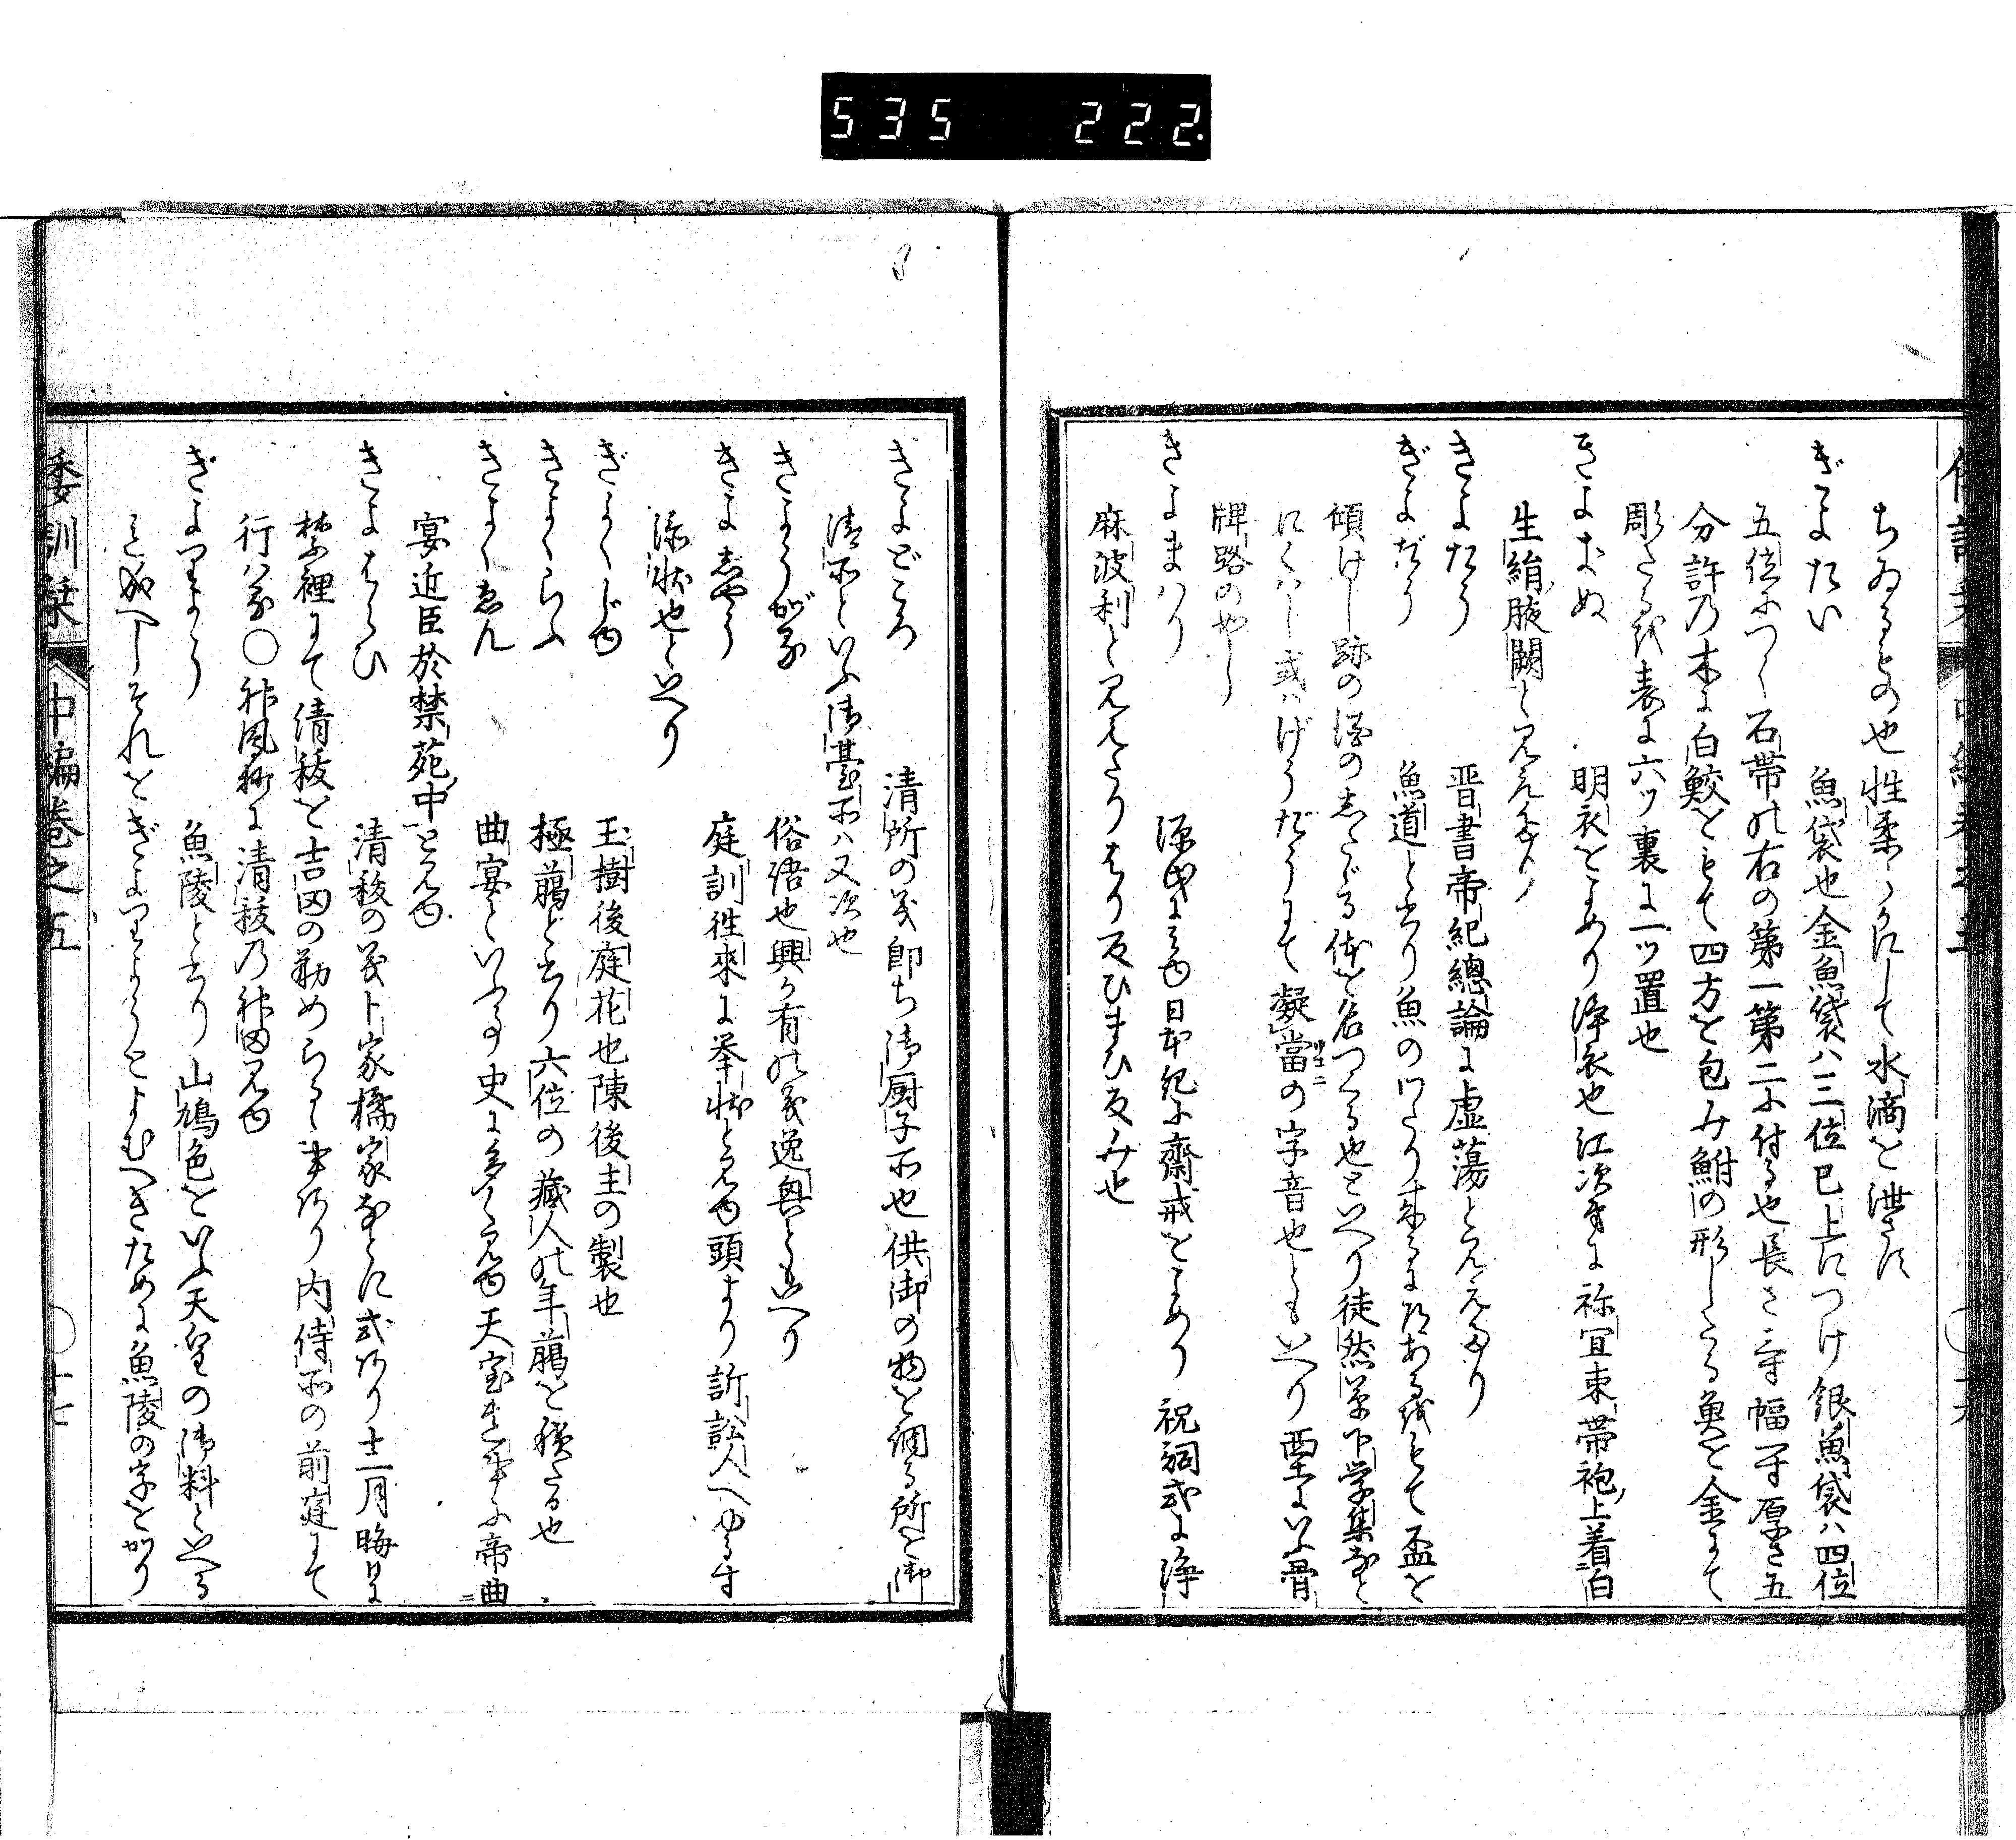 535 222
ちゐるもの也性柔らかにして水滴を泄さす
ぎよたい 魚袋也金魚袋ハ三位已上につけ銀魚袋ハ四位
五位につく石帯の右の第一第二に付る也長さ三寸幅一寸厚さ五
分許の木に白鮫をもて四方を包み鮒の形したる魚を金にて
彫さるを表に六ツ裏に一ツ置也
きよきぬ 明衣をよめり浄衣也江次第に祢宜束帯袍上着白
生絹腋闕と見えたり
きよたう 晋書帝紀總論に虚蕩とみえたり
ぎよだう 魚道と書り魚のわたり来るに道あるをもて盃を
傾けし跡の酒のしたゞる体を名つくる也といへり徒然草下学集なと
にくハし或ハげうだうにて凝當の字音也ともいへり西土にいふ骨
牌路のやし
きよまハり 源氏にみゆ日本紀に齋戒をよめり祝詞式に浄
麻波利と見えたりまり反ひまひ反み也
きよどころ 清所の義即ち御厨子所也供御の物を調る所を御
清所といふ御臺所ハ又次也
きようがる 俗語也興か有の義逸興ともいへり
きよしやう 庭訓徃來に挙状とみゆ頭より訴訟人へゆるす
添状也といへり
ぎよくじゆ 玉樹後庭花也陳後主の製也
きよくらふ 極﨟と書り六位の藏人の年﨟を積たる也
きよくゑん 曲宴といふ事史に多く見ゆ天宝遺事に帝曲
宴近臣於禁苑中とみゆ
きよはらひ 清秡の義卜家橘家なとに式有り十二月晦日に
禁裡にて清秡を吉田の勤めらるゝ事有り内侍所の前庭にて
行ハる〇神風抄に清秡の神田見ゆ
ぎよりよう 魚陵と書り山鳩色をいふ天皇の御料といへる
ミ成へしそれをぎよりようとよむへきために魚陵の字をかり
倭訓栞 中編巻之五 〇十七